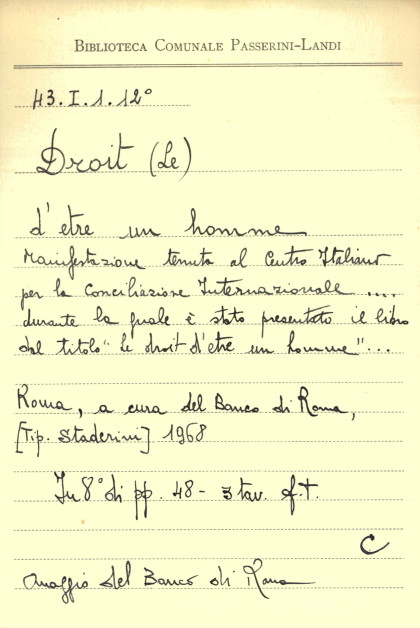 BIBLIOTECA COMUNALE PASSERINI-LANDI
43.I.1.12°
Droit (Le)
d'etre un homme
Manifestazione tenuta al Centro Italiano
per la Conciliazione Internazionale ....
durante la quale è stato presentato il libro
dal titolo "le droit d'etre un homme"...
Roma, a cura del Banco di Roma,
[Tip. Staderini] 1968
In 8° di pp. 48 - 3 tav. f.t.
C
Omaggio del Banco di Roma